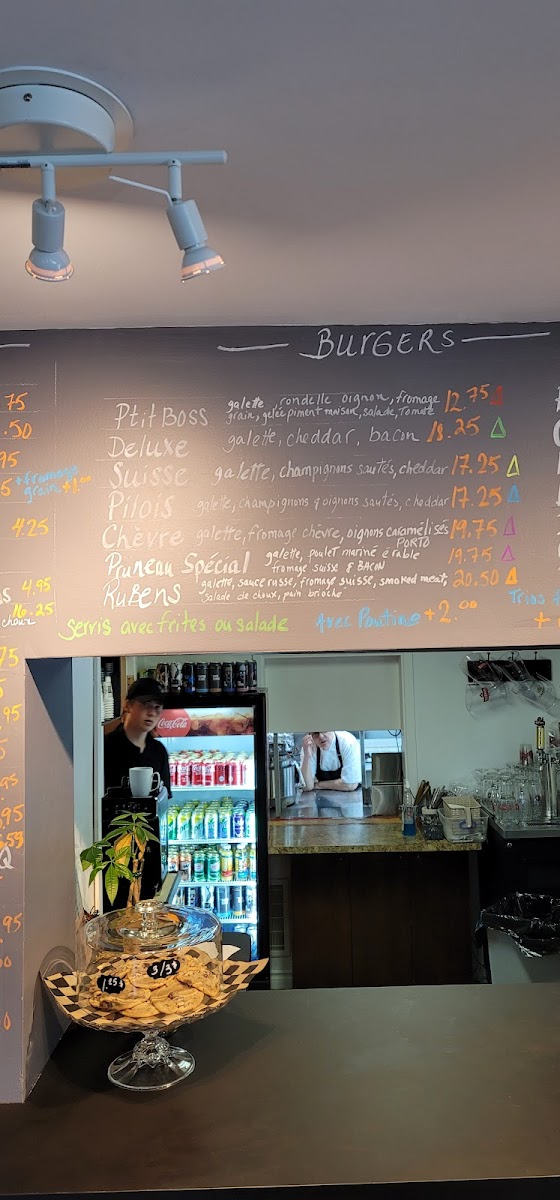 BURGERS
Ptit Boss galette, rondelle oignon, fromage 12.75
grain, gelée piment maison, salade, Tomate
Deluxe galette, cheddar, bacon 18.25
Suisse galette, champignons sautés, cheddar 17.25
Pilois galette, champignons & oignons sautés, cheddar 17.25
Chèvre galette, fromage chèvre, oignons caramélisés 19.75
PORTO
Pruneau Spécial galette, poulet mariné érable 19.75
fromage suisse & BACON
Rubens galette, sauce russe, fromage suisse, smoked meat, 20.50
salade de choux, pain brioché
Servis avec frites ou salade Avec Poutine +2.00
75
.50
95
5 + fromage
grain +1.00
4.25
4.95
16.25
choux
75
.95
.95
Coca-Cola
1.25$
3/3$